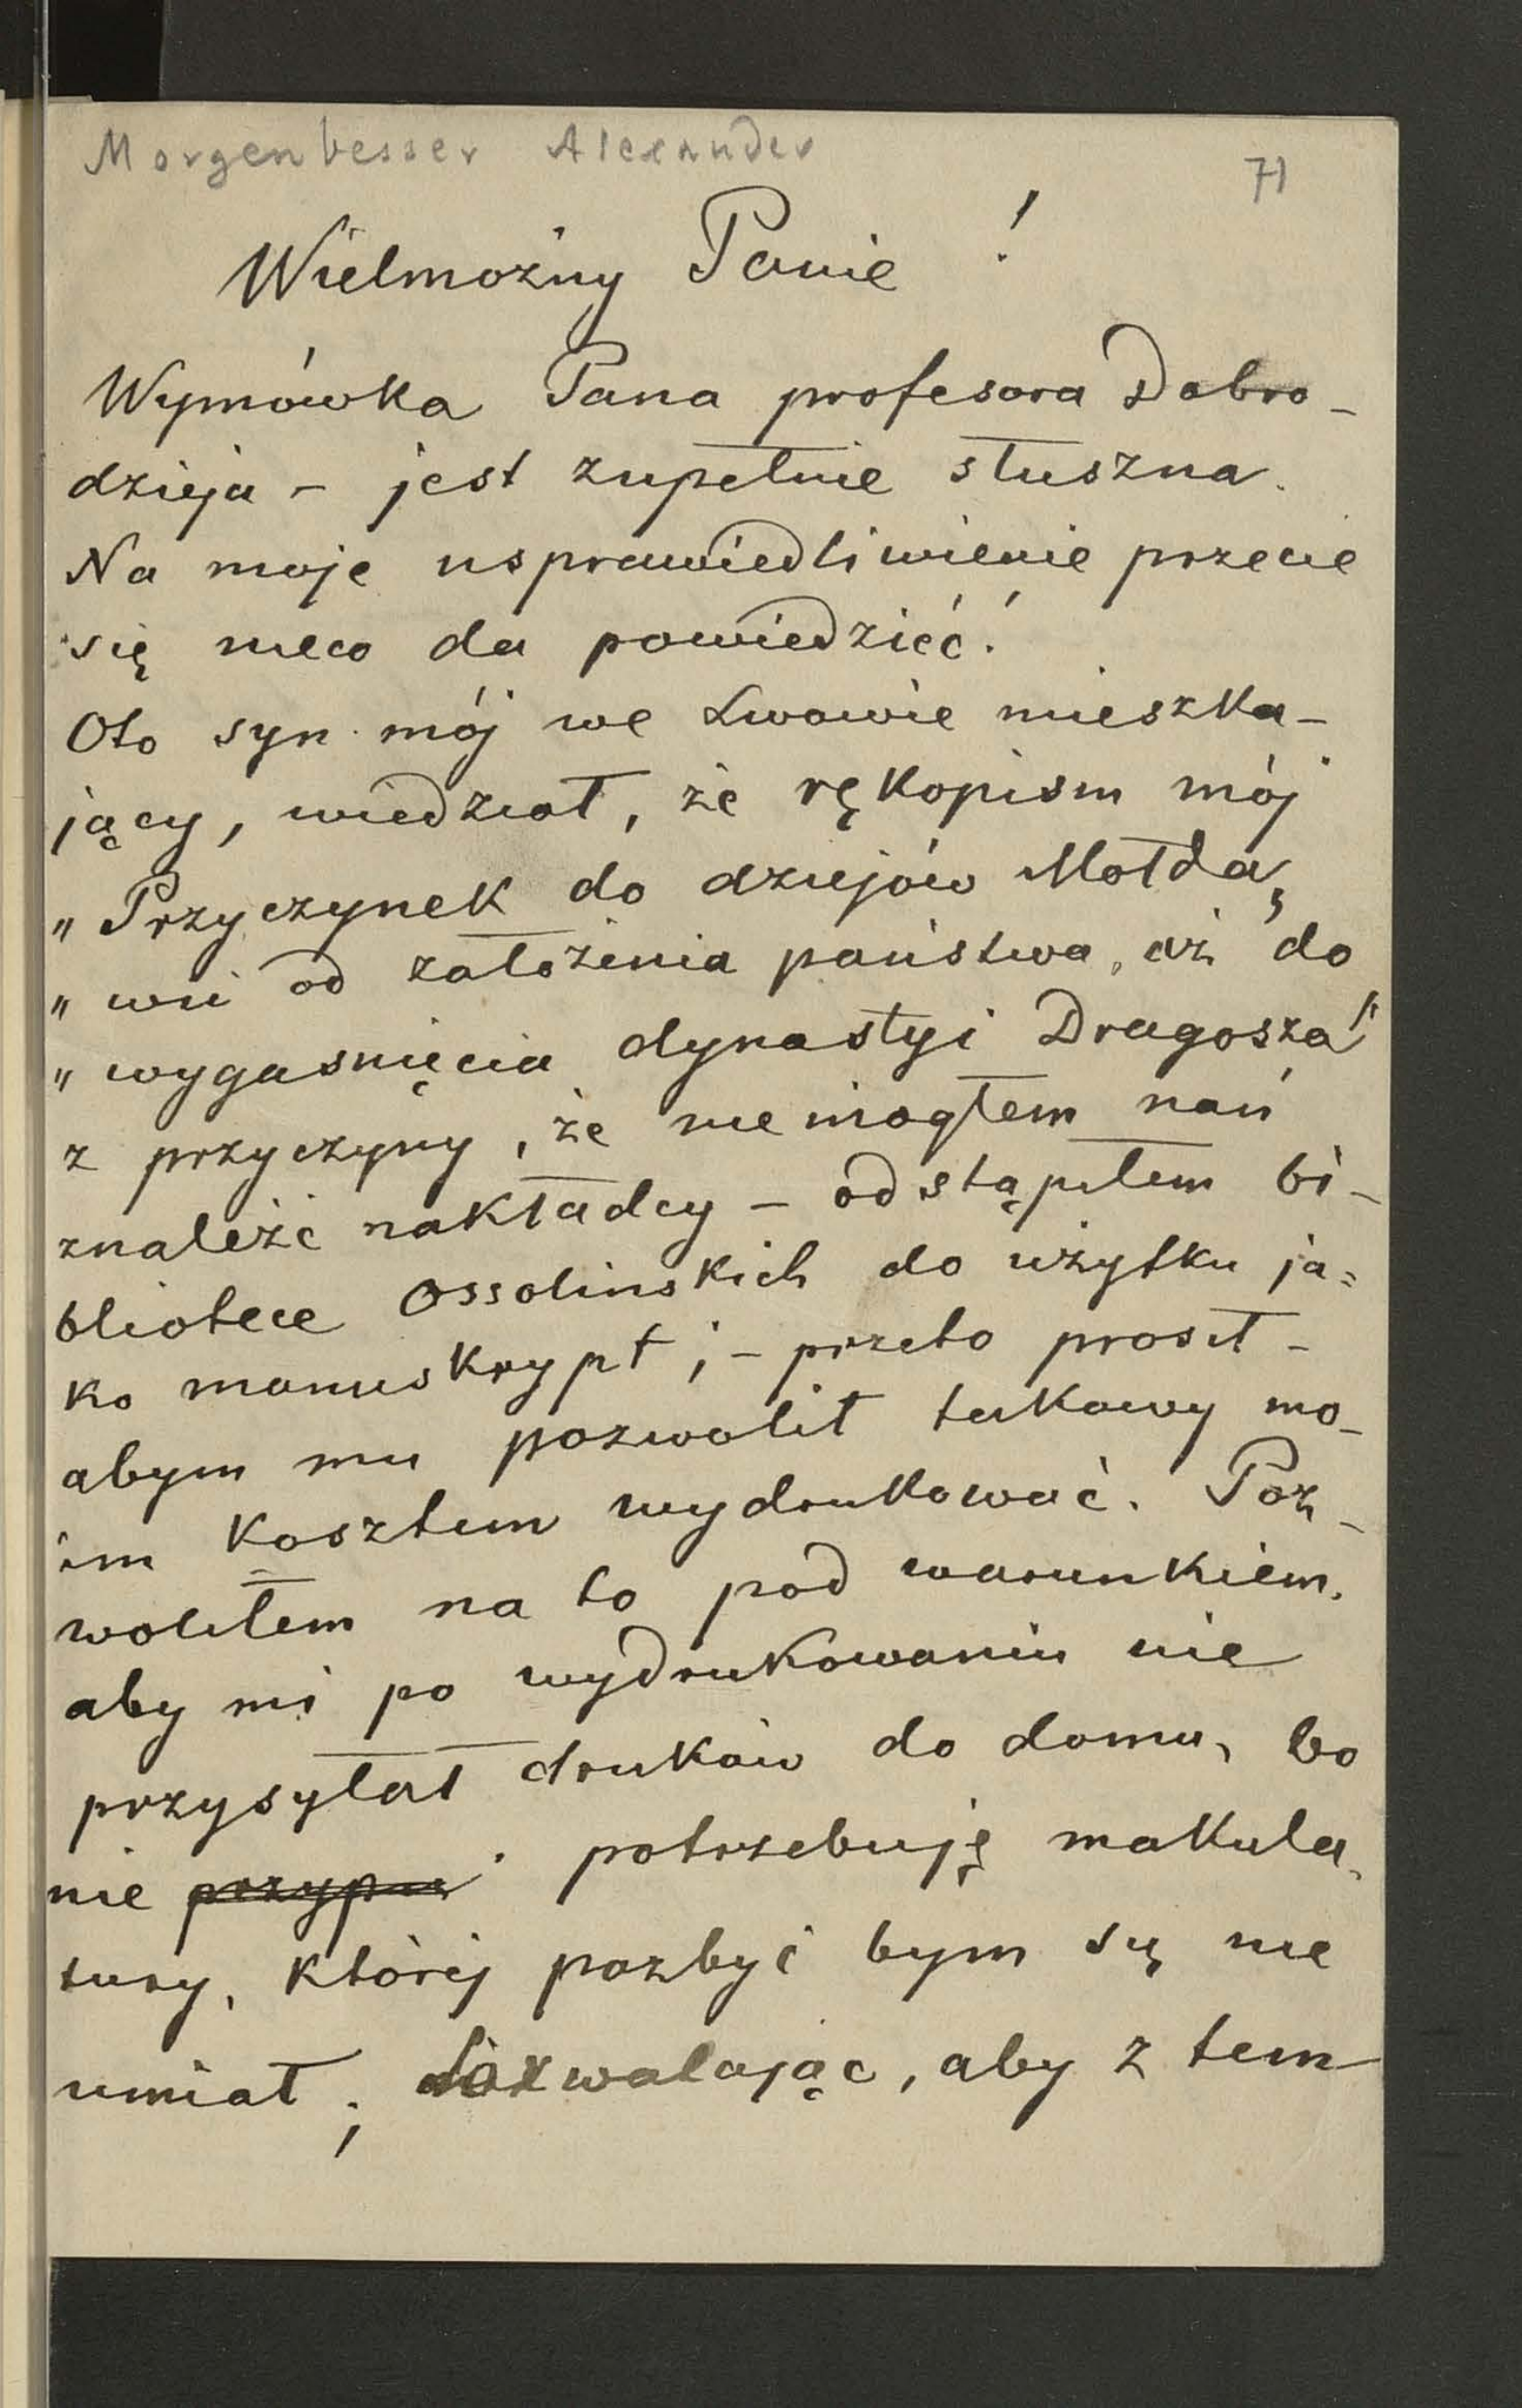 Morgenbesser Alexander
71
Wielmożny Panie !
Wymówka Pana profesora Dobro-
dzieja - jest zupełnie słuszna.
Na moje usprawiedliwienie przecie
się nieco da powiedzieć!
Oto syn mój we Lwowie mieszka-
jący, wiedział, że rękopism mój
„Przyczynek do dziejów Mołda,
„wii od założenia państwa, aż do
„wygasnięcia dynastyi Dragosza"
z przyczyny, że nie mogłem nań
znaleźć nakładcy - odstąpiłem bi-
bliotece Ossolinskich do użytku ja=
ko manuskrypt; - przeto prosił -
abym mu pozwolił takowy mo-
im kosztem wydrukować. Poz-
woliłem na to pod warunkiem,
aby mi po wydrukowaniu nie
przysyłał druków do domu, bo
nie przypu potrzebuję makula,
tury, którėj pozbyć bym się nie
umiał; dozwalając, aby z tem